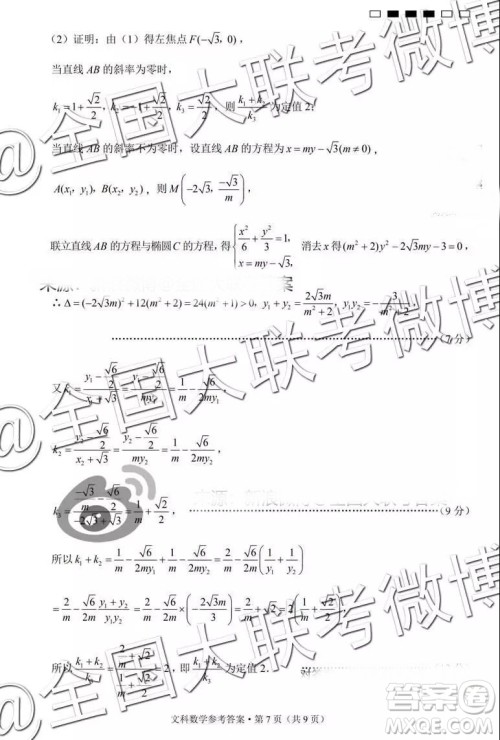 (2)证明：由(1)得左焦点 F(−√3, 0)，
当直线 AB 的斜率为零时，
k₁=1+√2/2, k₂=−1+√2/2, k₃=√2/2，则 (k₁+k₂)/k₃ 为定值 2；
当直线 AB 的斜率不为零时，设直线 AB 的方程为 x=my−√3(m≠0)，
A(x₁, y₁), B(x₂, y₂)，则 M(−2√3, −√3/m)，
联立直线 AB 的方程与椭圆 C 的方程，得 { x²/6+y²/3=1, x=my−√3, 消去 x 得(m²+2)y²−2√3my−3=0，
∴Δ=(−2√3m)²+12(m²+2)=24(m²+1)>0, y₁+y₂=2√3m/(m²+2), y₁y₂=−3/(m²+2).
(7分)
又k₁=(y₁−√6/2)/(x₁+√3)=(my₁−√6/2)/my₁=1/m−√6/2my₁
k₂=(y₂−√6/2)/(x₂+√3)=/my₂=1/m−√6/2my₂
k₃=(−√3/m−√6/2)/(−2√3+√3)=1/m+√2/2，(9分)
所以 k₁+k₂=1/m−√6/2my₁+1/m−√6/2my₂=2/m−√6/2m(1/y₁+1/y₂)
=2/m−√6/2m·(y₁+y₂)/y₁y₂=2/m−√6/2m×(−2√3m/3)=2/m+√2=2(1/m+√2/2)，
所以 (k₁+k₂)/k₃=(2/m+√2)/(1/m+√2/2)=2，即 (k₁+k₂)/k₃ 为定值 2.
文科数学参考答案·第 7 页（共 9 页）
@全国大联考微博
@全国大联考微博
答案圈
MXQE.COM